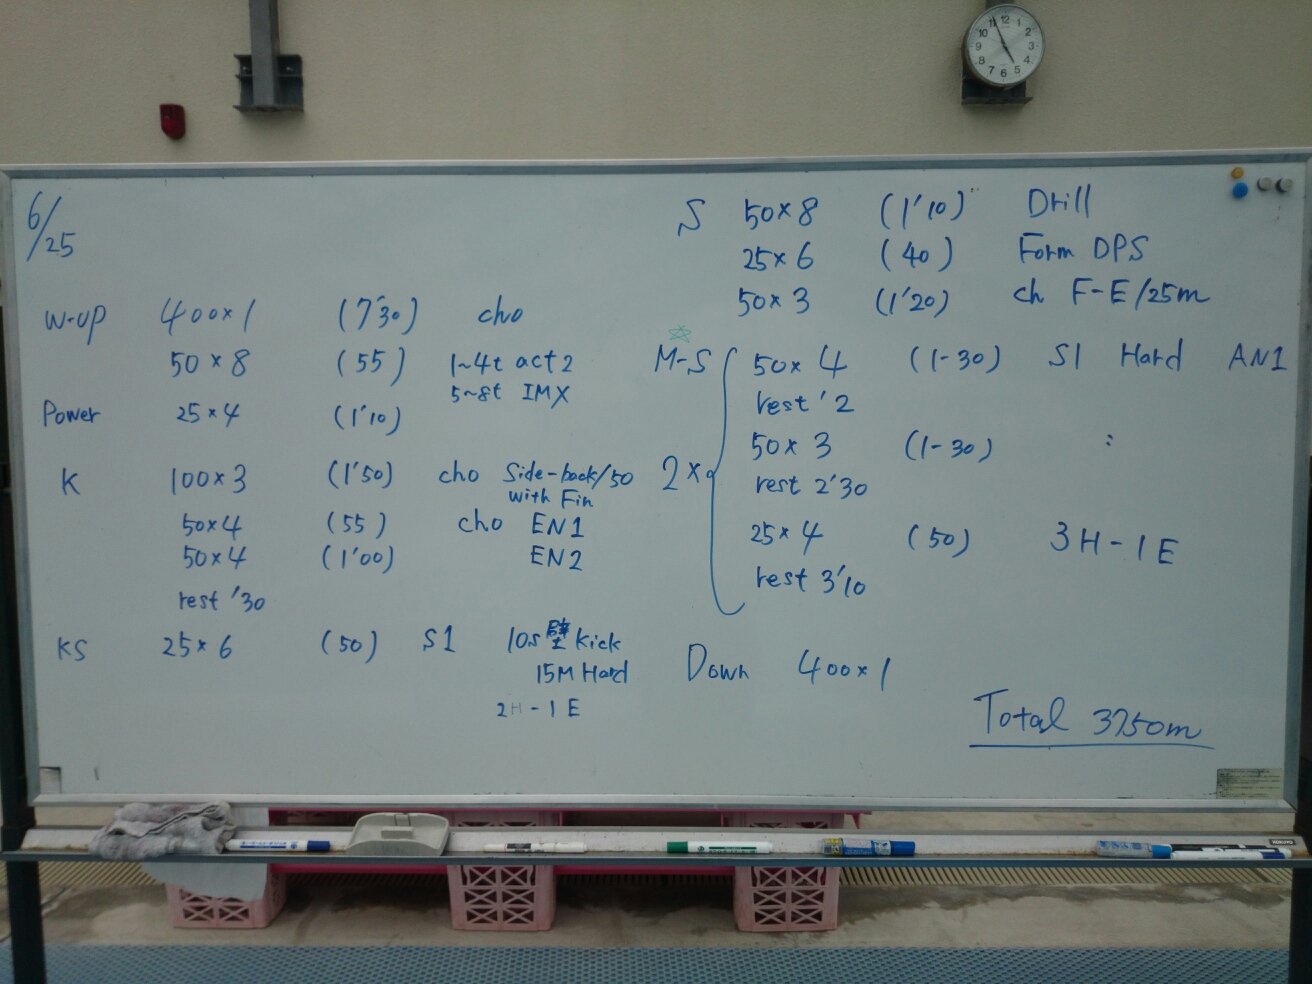 6/25
W-up 400×1 (7'30) cho
50×8 (55) 1~4t act 2
5~8t IMX
Power 25×4 (1'10)
K 100×3 (1'50) cho Side-back/50
with Fin
50×4 (55) cho EN1
50×4 (1'00) EN2
rest '30
KS 25×6 (50) S1 10s 壁 Kick
15M Hard
2H-1E
S 50×8 (1'10) Drill
25×6 (40) Form DPS
50×3 (1'20) ch F-E/25m
☆
M-S 50×4 (1-30) S1 Hard AN1
rest '2
50×3 (1-30) :
2× rest 2'30
25×4 (50) 3H-1E
rest 3'10
Down 400×1
Total 3750m
12 1 2 3 4 5 6 7 8 9 10 11